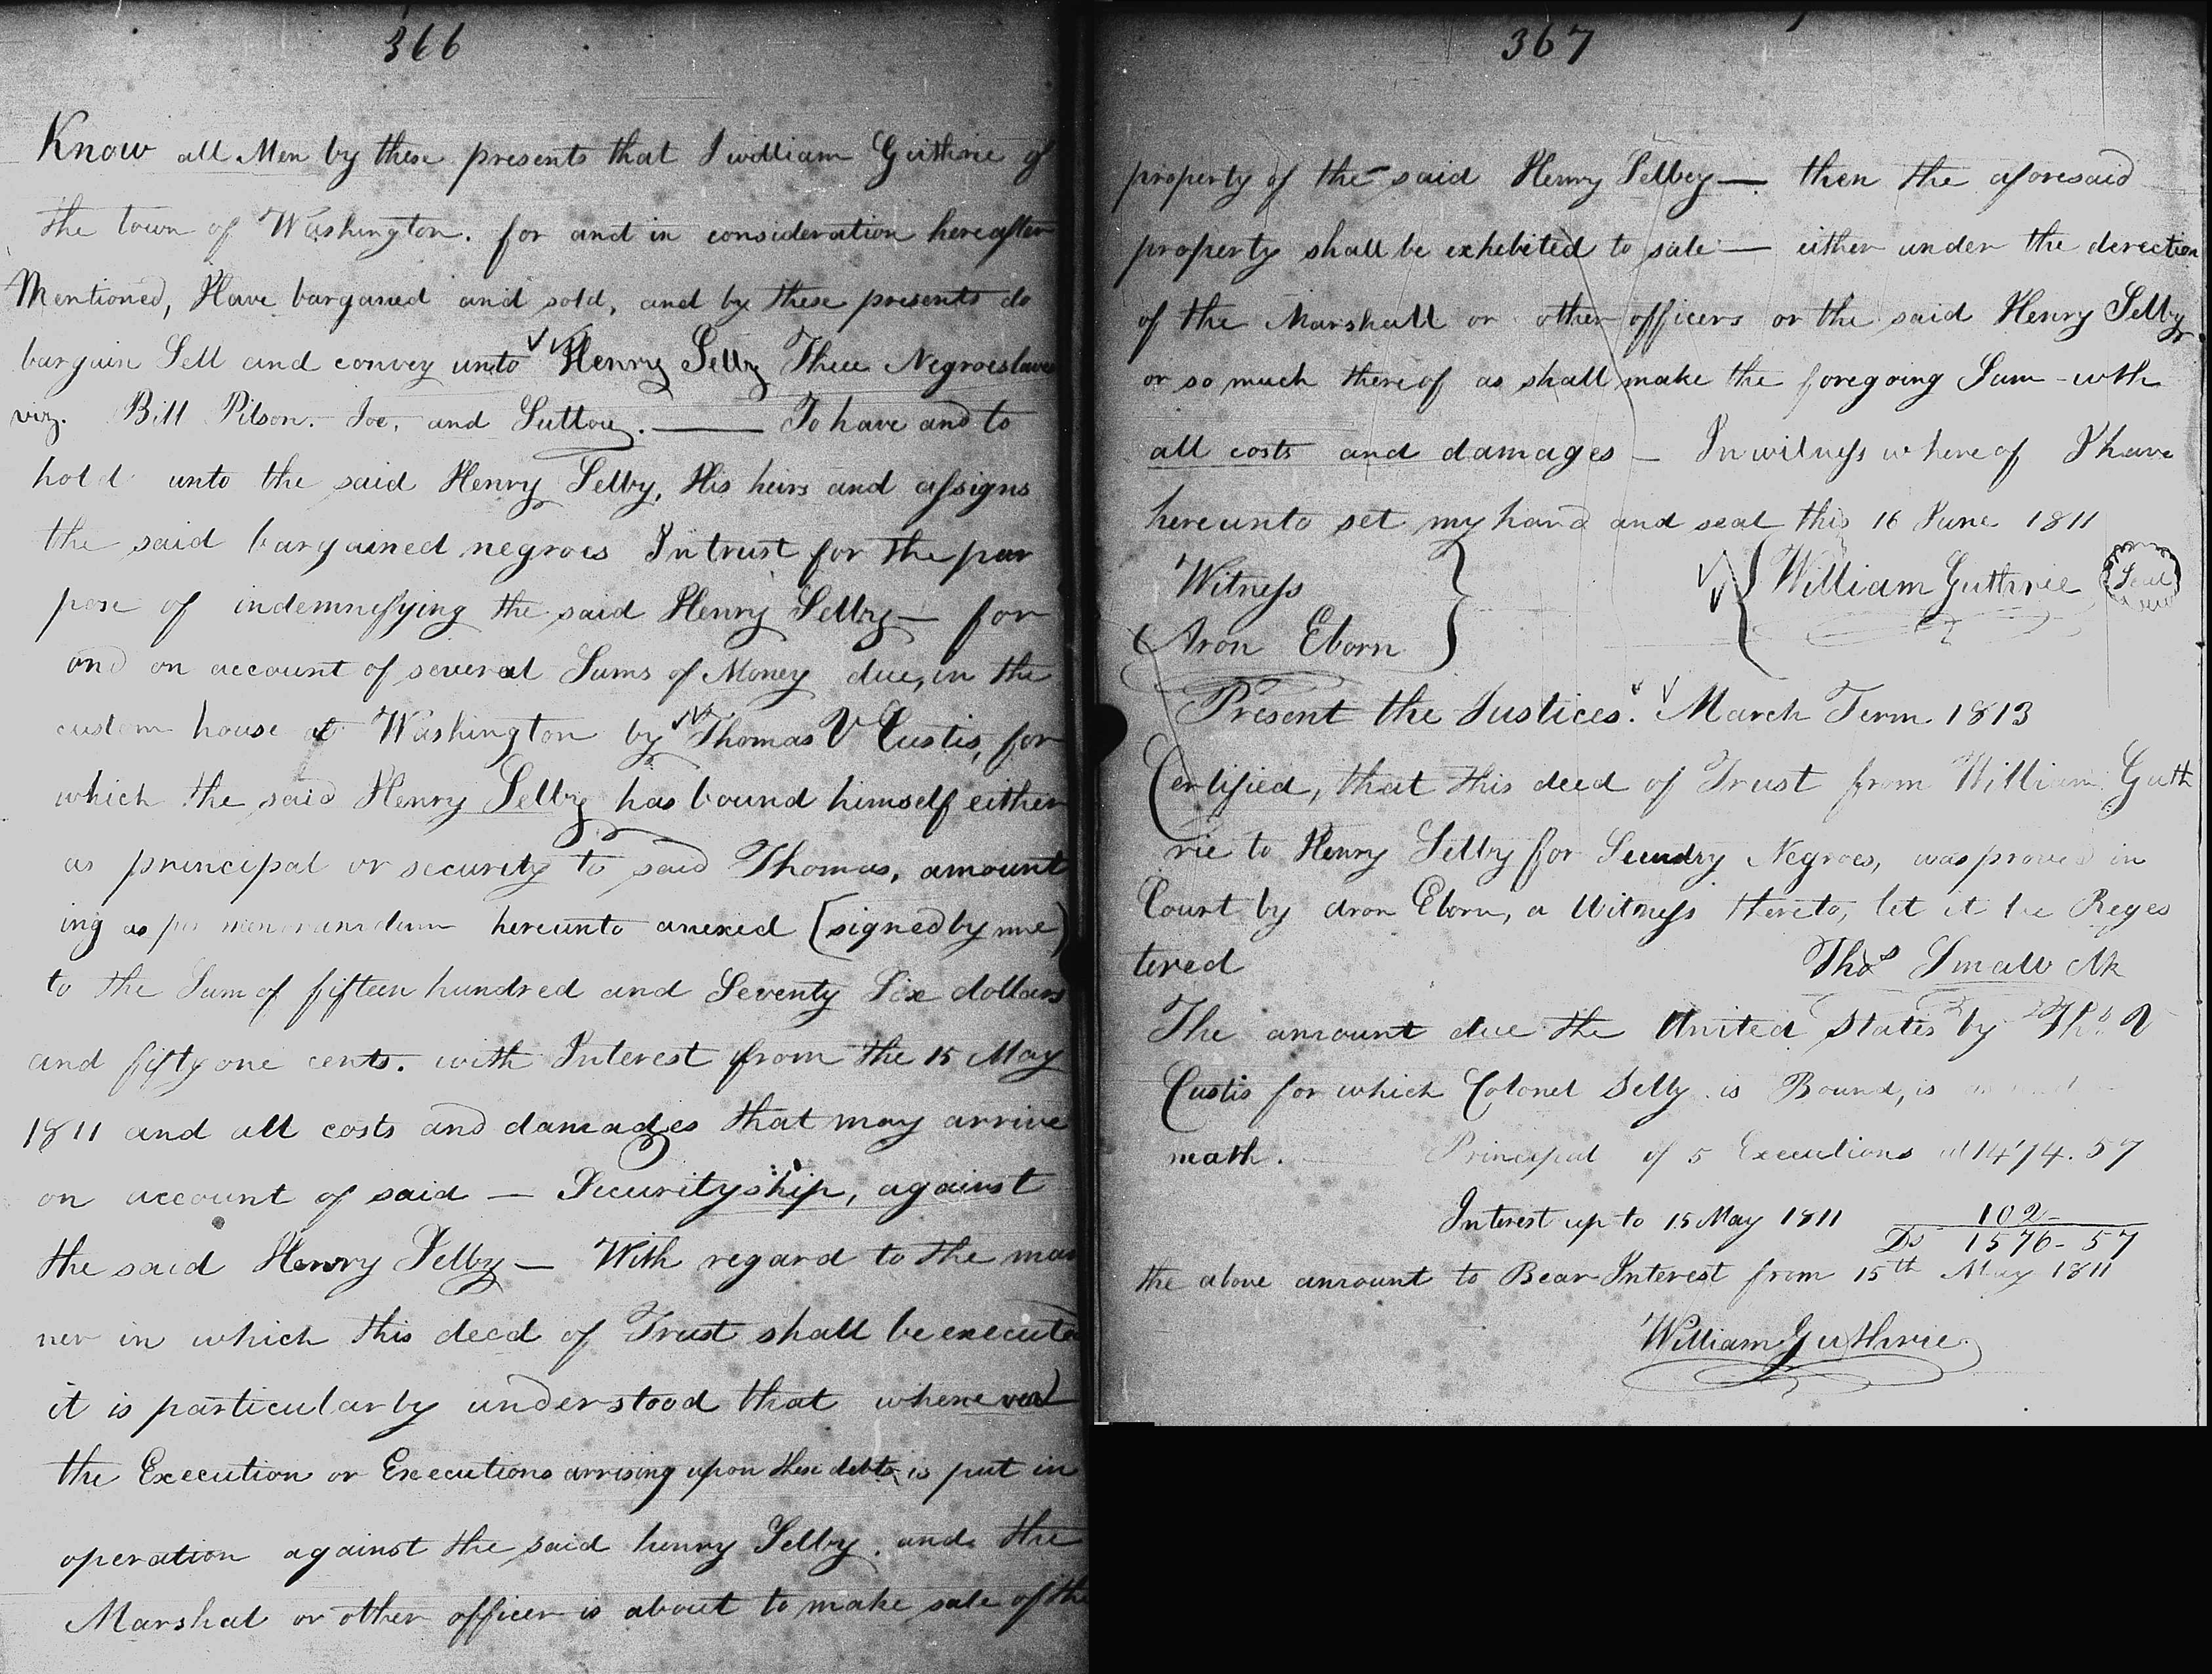 366
Know all Men by these presents that I william Guthrie of
the town of Washington. for and in consideration hereafter
Mentioned, Have bargained and sold, and by these presents do
bargain Sell and convey unto Henry Selby Three Negroeslaves
viz. Bill Pilson. Joe, and Sutton. — To have and to
hold unto the said Henry Selby, His heirs and assigns
the said bargained negroes In trust for the pur
pose of indemnifying the said Henry Selby — for
and on account of several Sums of Money due, in the
custom house at Washington by Thomas V Custis, for
which the said Henry Selby has bound himself either
as principal or security to said Thomas, amount
ing as per memorandum hereunto anexed (signed by me)
to the Sum of fifteen hundred and Seventy Six dollars
and fifty one cents. with Interest from the 15 May
1811 and all costs and damages that may arrive
on account of said — Securityship, against
the said Henry Selby — With regard to the man
ner in which this deed of Trust shall be executed
it is particularly understood that whenever
the Execution or Executions arrising upon these debts is put in
operation against the said henry Selby. and the
Marshal or other officer is about to make sale of the
367
property of the said Henry Selbey — then the aforesaid
property shall be exhebited to sale — either under the derection
of the Marshall or other officers or the said Henry Selby
or so much thereof as shall make the foregoing Sum - wth
all costs and damages — In witness whereof I have
hereunto set my hand and seal this 16 June 1811
Witness William Guthrie Seal
Aron Eborn
Present the Justices. March Term 1813
Certified, that this deed of Trust from William Guth
rie to Henry Selby for Sundry Negroes, was proved in
Court by Aron Eborn, a Witness thereto, let it be Reges
tered
Thos Small Clk
The amount due the United States by Thos V
Custis for which Colonel Selby is Bound, is
math. Principal of 5 Executions at 1474.57
Interest up to 15 May 1811 102-
Ds 1576-57
the above amount to Bear Interest from 15th May 1811
William Guthrie